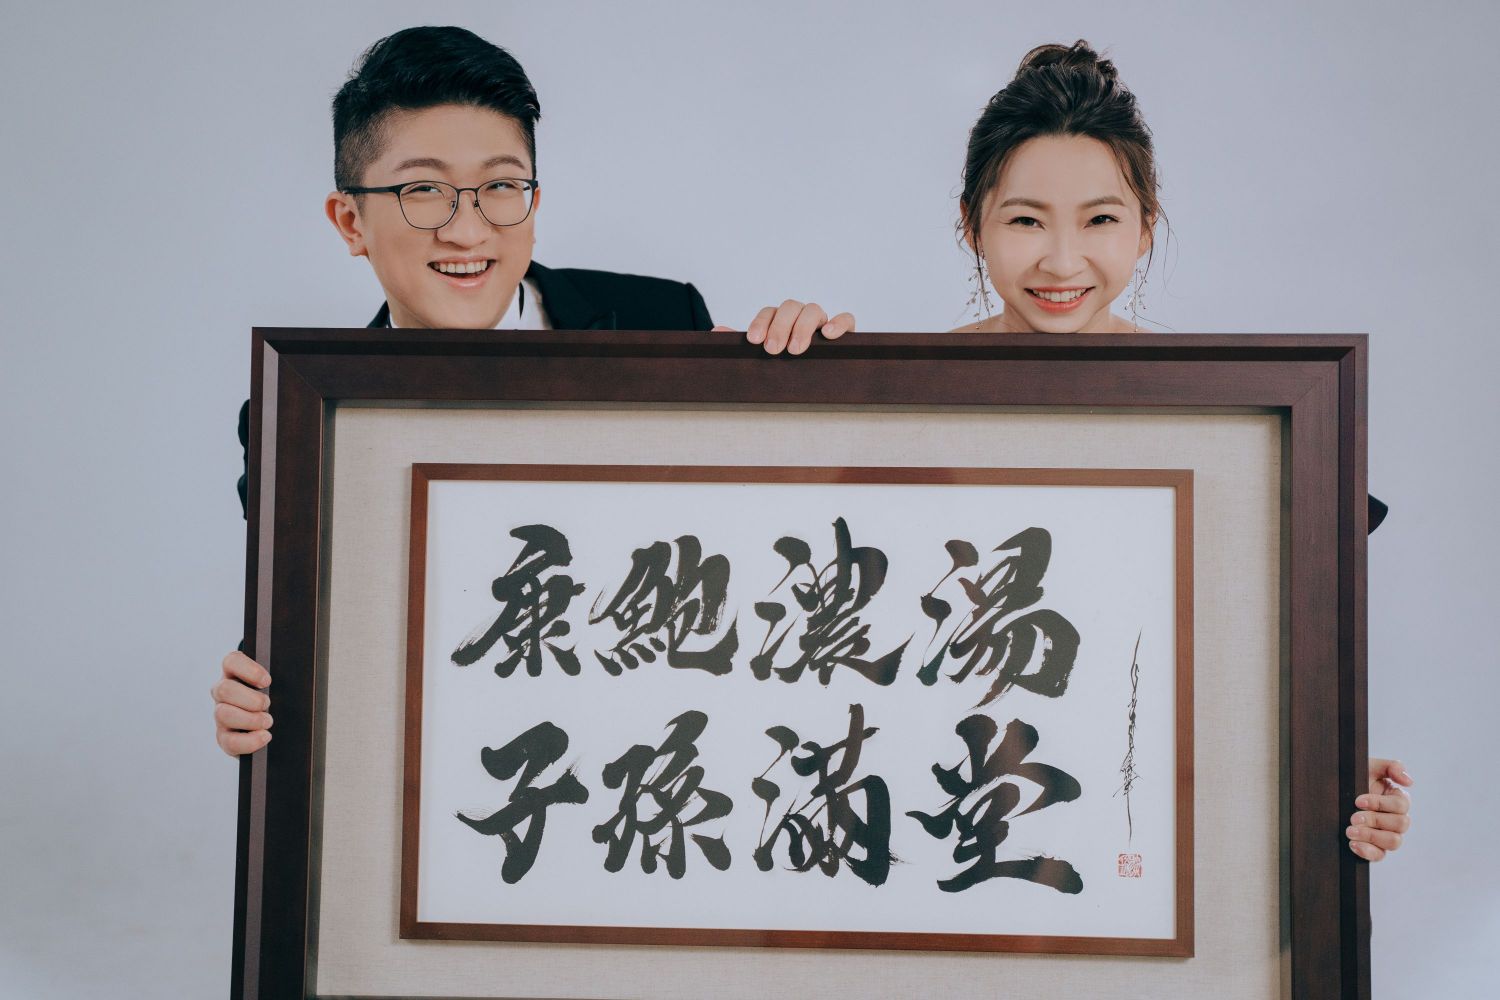 康鮑濃湯
子孫滿堂